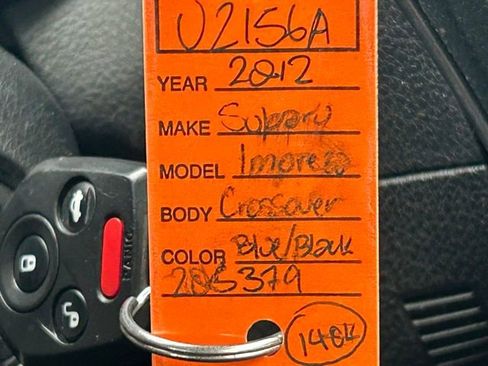 U2156A
YEAR 2012
MAKE Subaru
MODEL Impreza
BODY Crossover
COLOR Blue/Black
205379
140K
PANIC